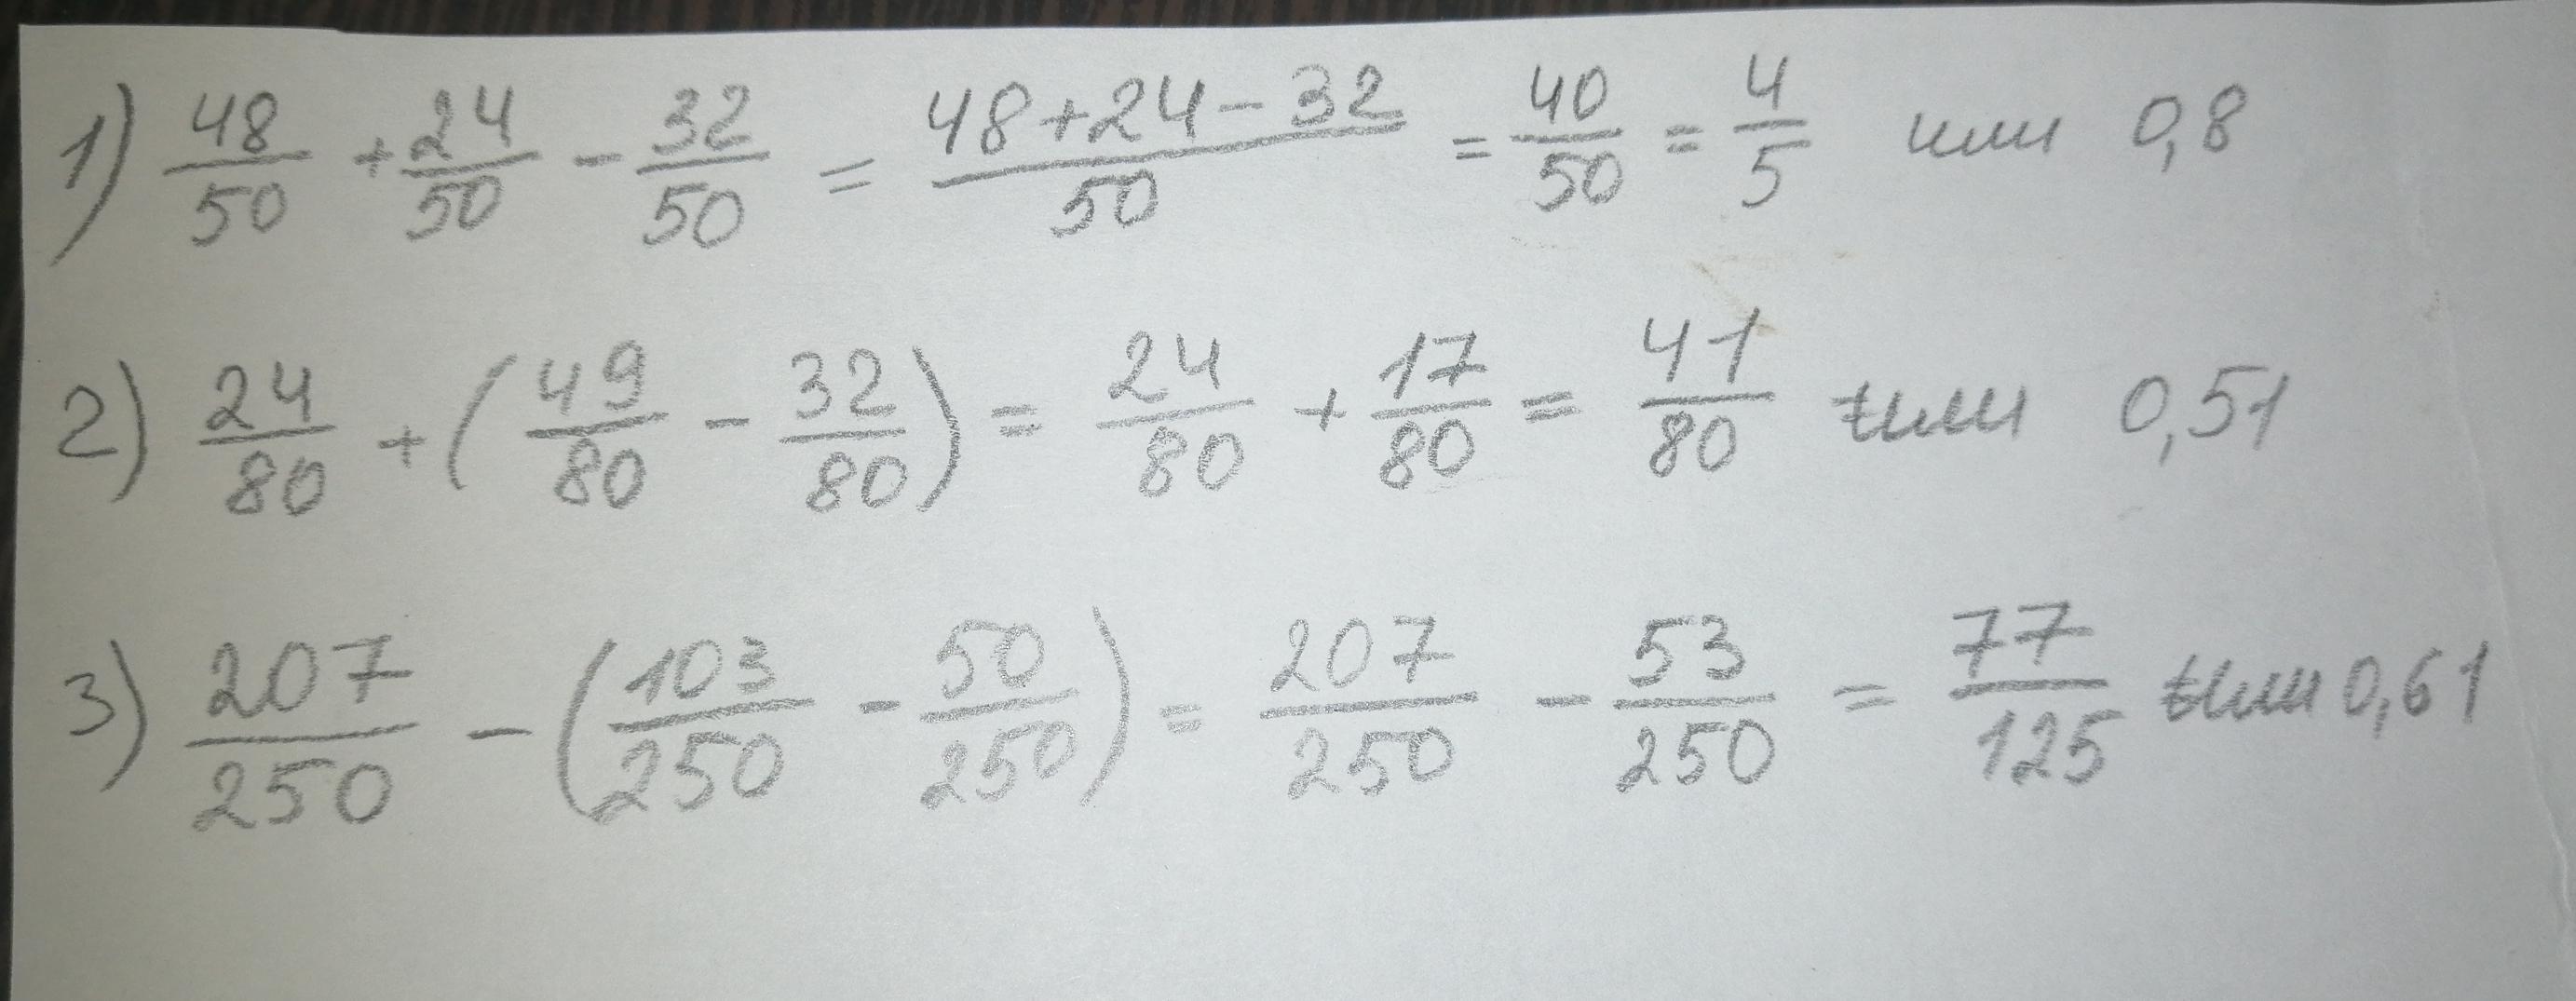 1) 48/50 + 24/50 - 32/50 = (48+24-32)/50 = 40/50 = 4/5 или 0,8
2) 24/80 + (49/80 - 32/80) = 24/80 + 17/80 = 41/80 или 0,51
3) 207/250 - (103/250 - 50/250) = 207/250 - 53/250 = 77/125 или 0,61